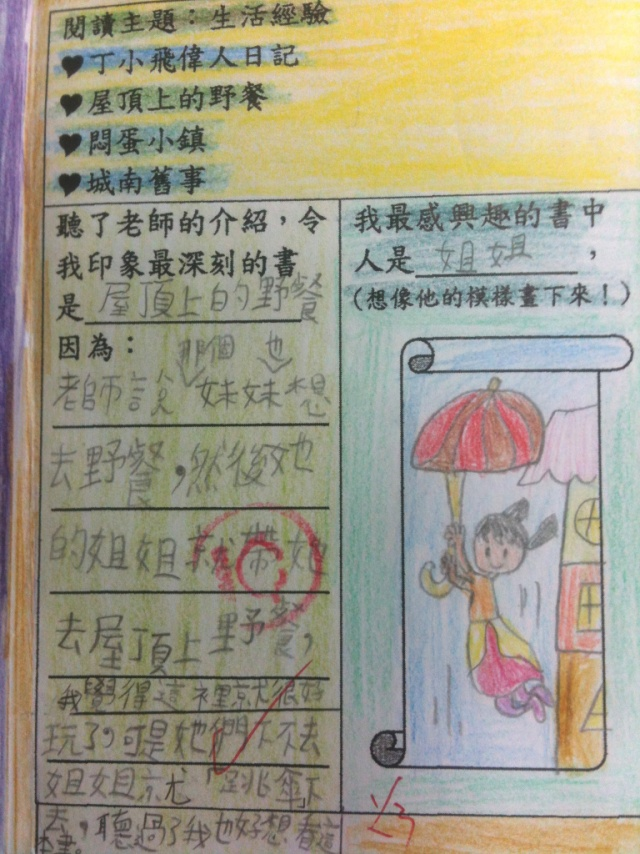 閱讀主題：生活經驗
♥丁小飛偉人日記
♥屋頂上的野餐
♥悶蛋小鎮
♥城南舊事
聽了老師的介紹，令
我印象最深刻的書
是屋頂上的野餐
因為：
那個 也
老師說妹妹想
去野餐，然後她
的姐姐就帶她
去屋頂上野餐，
我覺得這裡就很好
玩了，可是她們下不去
姐姐就「跳傘」下
去，聽過了我也好想看這
本書。
我最感興趣的書中
人是姐姐，
（想像他的模樣畫下來！）